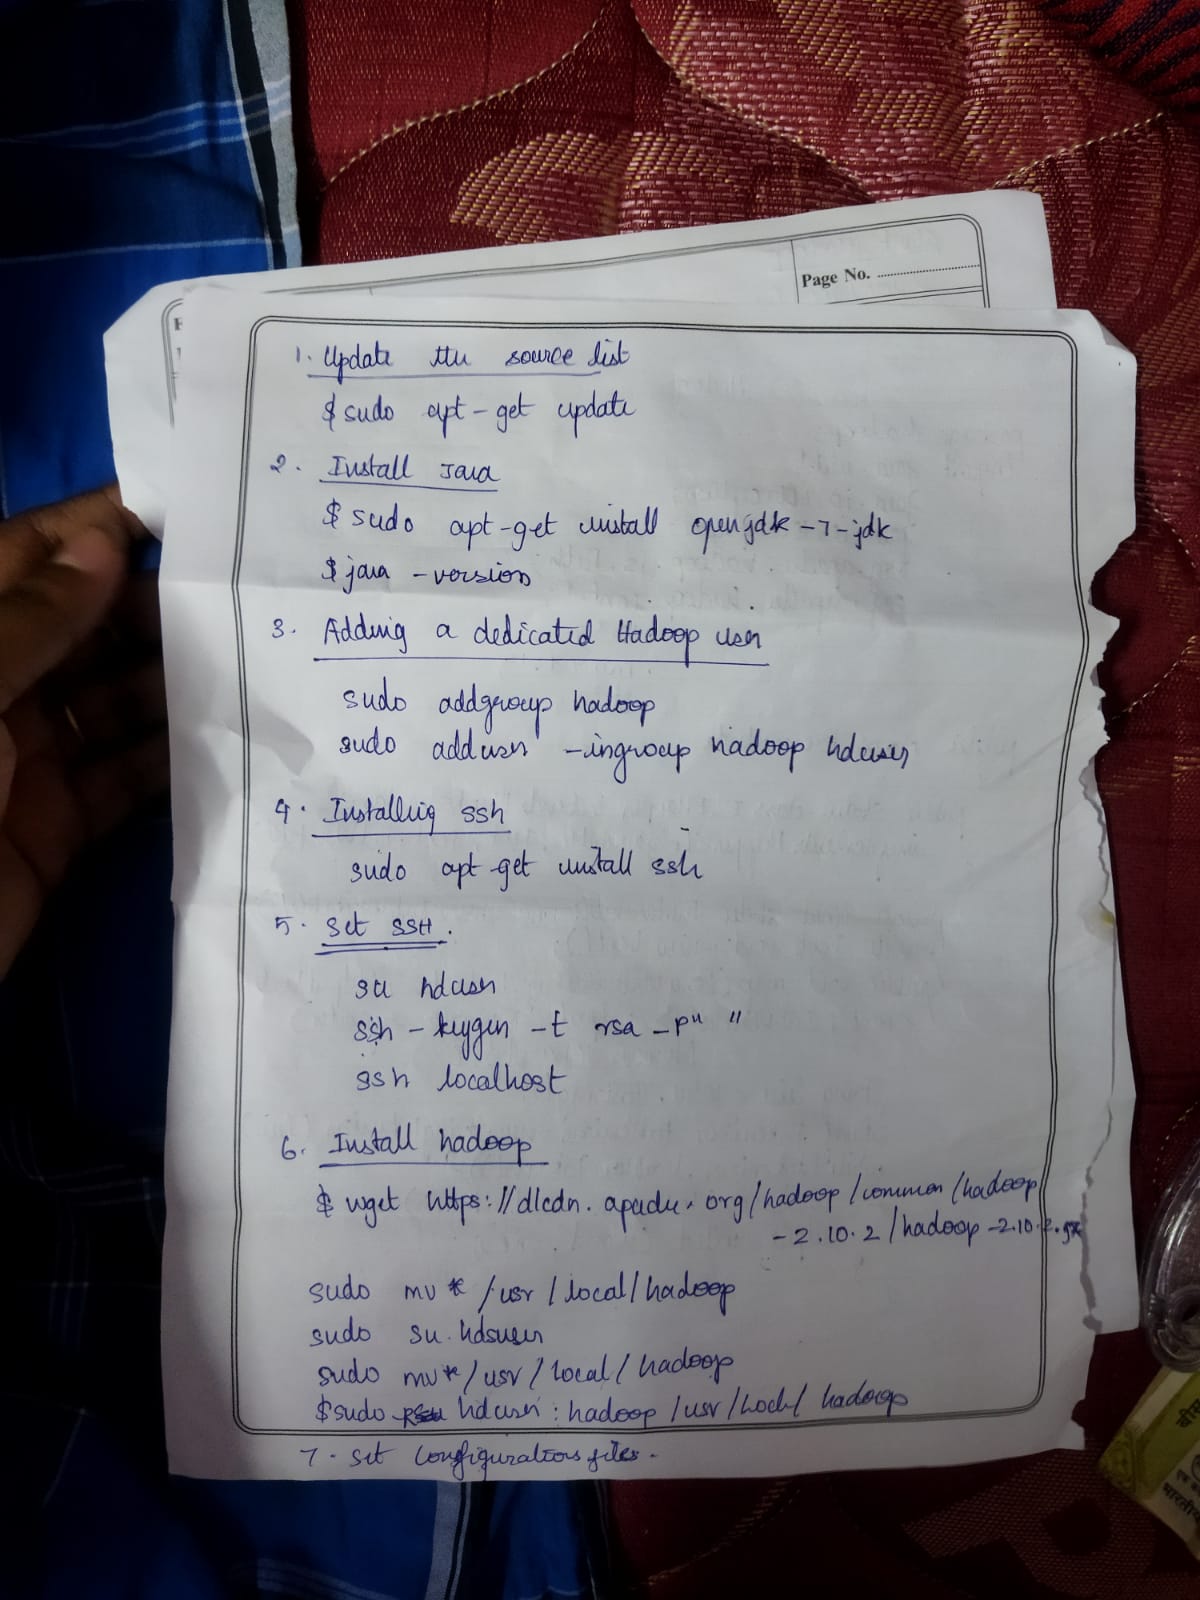 Page No.
1. Update the source list
$ sudo apt-get update
2. Install Java
$ sudo apt-get install openjdk-7-jdk
$ java -version
3. Adding a dedicated Hadoop user
sudo addgroup hadoop
sudo adduser -ingroup hadoop hduser
4. Installing ssh
sudo apt-get install ssh
5. Set SSH.
su hduser
ssh-keygen -t rsa -P" "
ssh localhost
6. Install hadoop
$ wget https://dlcdn.apache.org/hadoop/common/hadoop
-2.10.2/hadoop-2.10.2
sudo mv * /usr/local/hadoop
sudo su hdsuser
sudo mv * /usr/local/hadoop
$ sudo hduser:hadoop /usr/local/ hadoop
7. Set Configurations files.